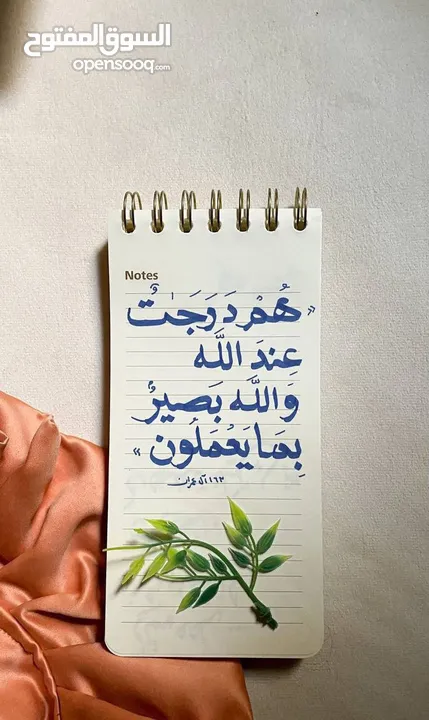 السوق المفتوح
opensooq.com
Notes
«هُمْ دَرَجَٰتٌ
عِندَ اللَّه
وَاللَّه بَصِيرٌ
بِمَا يَعْمَلُون»
١٦٣ آل عمران